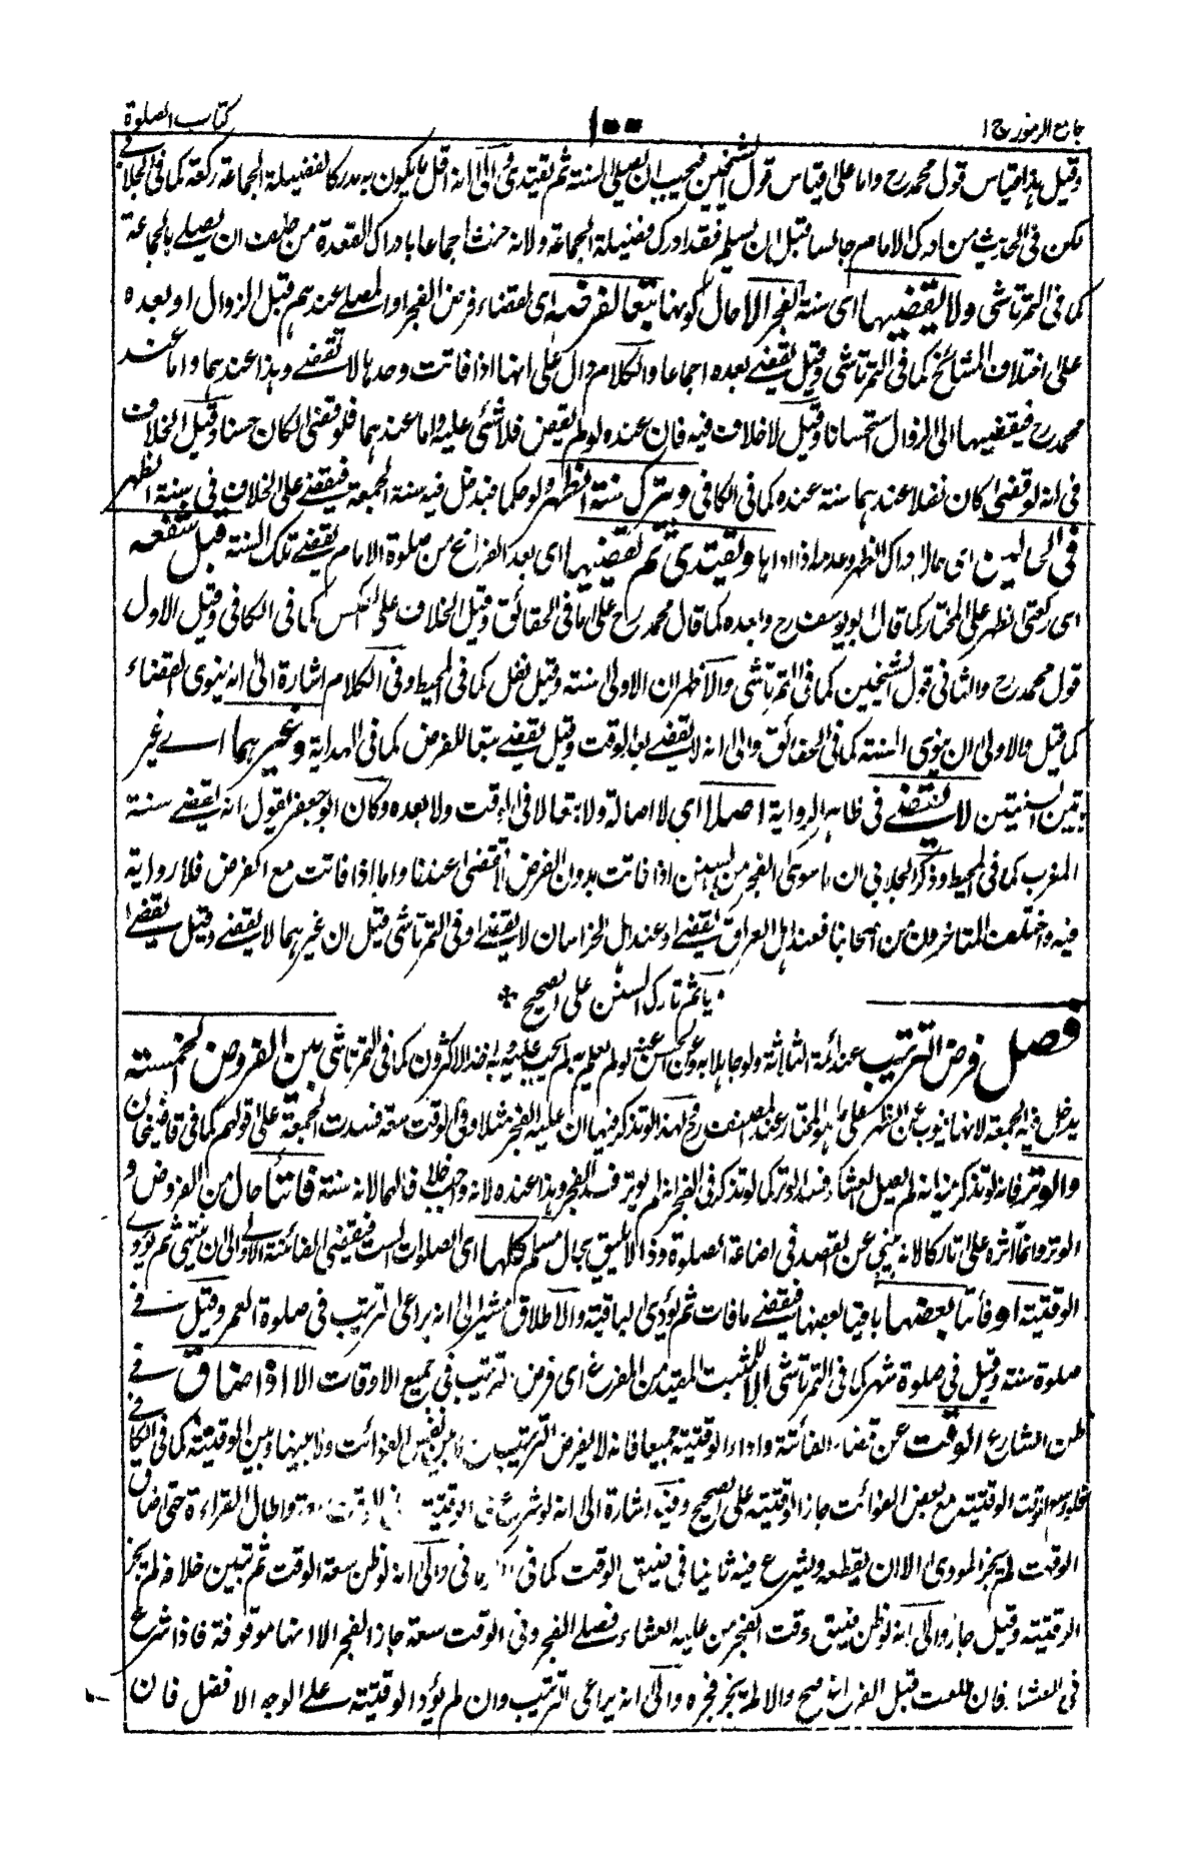 جامع الرموز ج ١
١٠٠
كتاب الصلوة
وقيل هذا قياس قول محمد رح واما على قياس قول الشيخين فيجب ان يصلى السنة ثم يقتدى والى انه اقل ما يكون به مدركا لفضيلة الجماعة ركعة كما فى الجلابى
لكن فى الحديث من ادرك الامام جالسا قبل ان يسلم فقد ادرك فضيلة الجماعة ولانه حنث اجماعا بادراك القعدة من حلف ان يصلى بالجماعة
كما فى التمرتاشى ولا يقضيها اى سنة الفجر الا حال كونها تبعا لفرضه اى لقضاء فرض الفجر او المصلى عندهم قبل الزوال او بعده
على اختلاف المشائخ كما فى التمرتاشى وقيل يقضى بعده اجماعا والكلام دال على انها اذا فاتت وحدها لا تقضى وهذا عندهما واما عند
محمد رح فيقضيها الى الزوال استحسانا وقيل لا خلاف فيه فان عنده لو لم يقض فلا شئ عليه واما عندهما فلو قضى لكان حسنا وقيل الخلاف
فى انه لو قضى كان نفلا عندهما سنة عنده كما فى الكافى ويترك سنة الظهر ولو حكما فيدخل فيه سنة الجمعة فيقضى على الخلاف فى سنة الظهر
فى الحالين اى حال ادراك الظهر وعدمه اذا اداها ويقتدى ثم يقضيها اى بعد الفراغ من صلوة الامام يقضى تلك السنة قبل شفعه
اى ركعتى الظهر على المختار كما قال ابو يوسف رح وبعده كما قال محمد رح على ما فى الحقائق وقيل الخلاف على العكس كما فى الكافى وقيل الاول
قول محمد رح والثانى قول الشيخين كما فى التمرتاشى والاظهر ان الاولى سنة وقيل نفل كما فى المحيط وفى الكلام اشارة الى انه ينوى القضاء
كما قيل والاولى ان ينوى السنة كما فى الحقائق والى انه لا يقضى بعد الوقت وقيل يقضى تبعا للفرض كما فى الهداية وغيرهما اى غير
هتين السنتين لا يقضى فى ظاهر الرواية اصلا اى لا اصالة ولا تبعا لا فى الوقت ولا بعده وكان ابو جعفر يقول انه يقضى سنة
المغرب كما فى المحيط وذكر الجلابى ان ما سوى الفجر من السنن اذا فاتت بدون الفرض لا تقضى عندنا واما اذا فاتت مع الفرض فلا رواية
فيه واختلف المتاخرون من اصحابنا فعند اهل العراق يقضى وعند اهل الخراسان لا يقضى وفى التمرتاشى قيل ان غيرهما لا يقضى وقيل يقضى
يأثم تارك السنن على الصحيح
فصل فرض الترتيب عند ائمة الثلاثة ولو جاهلا به وعن الحسن عنه لو لم يعلم به لم يجب عليه وبه اخذ الاكثرون كما فى التمرتاشى بين الفروض الخمسة
يدخل فيه الجمعة لانها نيوب عن الظهر على ما هو المختار عند المصنف رح لهذا لو تذكر فيها ان عليه الفجر مثلا وفى الوقت سعة فسدت الجمعة على قولهم كما فى قاضيخان
والوتر فانه لو تذكر فيه انه لم يصل العشاء فسد الوتر كما لو تذكر فى الفجر انه لم يوتر فسد الفجر وهذا عنده لانه واجب خلافا لهما لانه سنة فائتا حال من الفروض و
الوتر وانما آثره على تاركا لانه ينبئ عن القصد فى اضاعة الصلوة وذا لا يليق بحال مسلم كلها اى الصلوات الست فيقضى الفائتة الاولى الى ان ينتهى ثم يؤدى
الوقتية او فائتا بعضها باقيا بعضها فيقضى ما فات ثم يؤدى الباقية والاطلاق مشير الى انه يراعى الترتيب فى صلوة العمر وقيل فى
صلوة سنة وقيل فى صلوة شهر كما فى التمرتاشى الا للمثبت المقيد من المفرغ اى فرض الترتيب فى جميع الاوقات الا اذا ضاق فى
ظن الشارع الوقت عن قضاء الفائتة واداء الوقتية جميعا فانه لا يفرض الترتيب بين نفس الفوائت ولا بينها وبين الوقتية كما فى الكافى
فلو وسع الوقت الوقتية مع بعض الفوائت جاز الوقتية على الصحيح وفيه اشارة الى انه لو شرع فى الوقتية واطال القراءة حتى ضاق
الوقت لم يجز المودى الا ان يقطعه ويشرع فيه ثانيا فى ضيق الوقت كما فى والى انه لو ظن سعة الوقت ثم تبين خلافه لم يجز
الوقتية وقيل جاز والى انه لو ظن ضيق وقت الفجر من عليه العشاء فصلى الفجر وفى الوقت سعة جاز الفجر الا انها موقوفة فاذا شرع
فى العشاء فان طلعت قبل الفراغ صح والا لم يجز فجره والى انه يراعى الترتيب وان لم يؤد الوقتية على الوجه الافضل فان